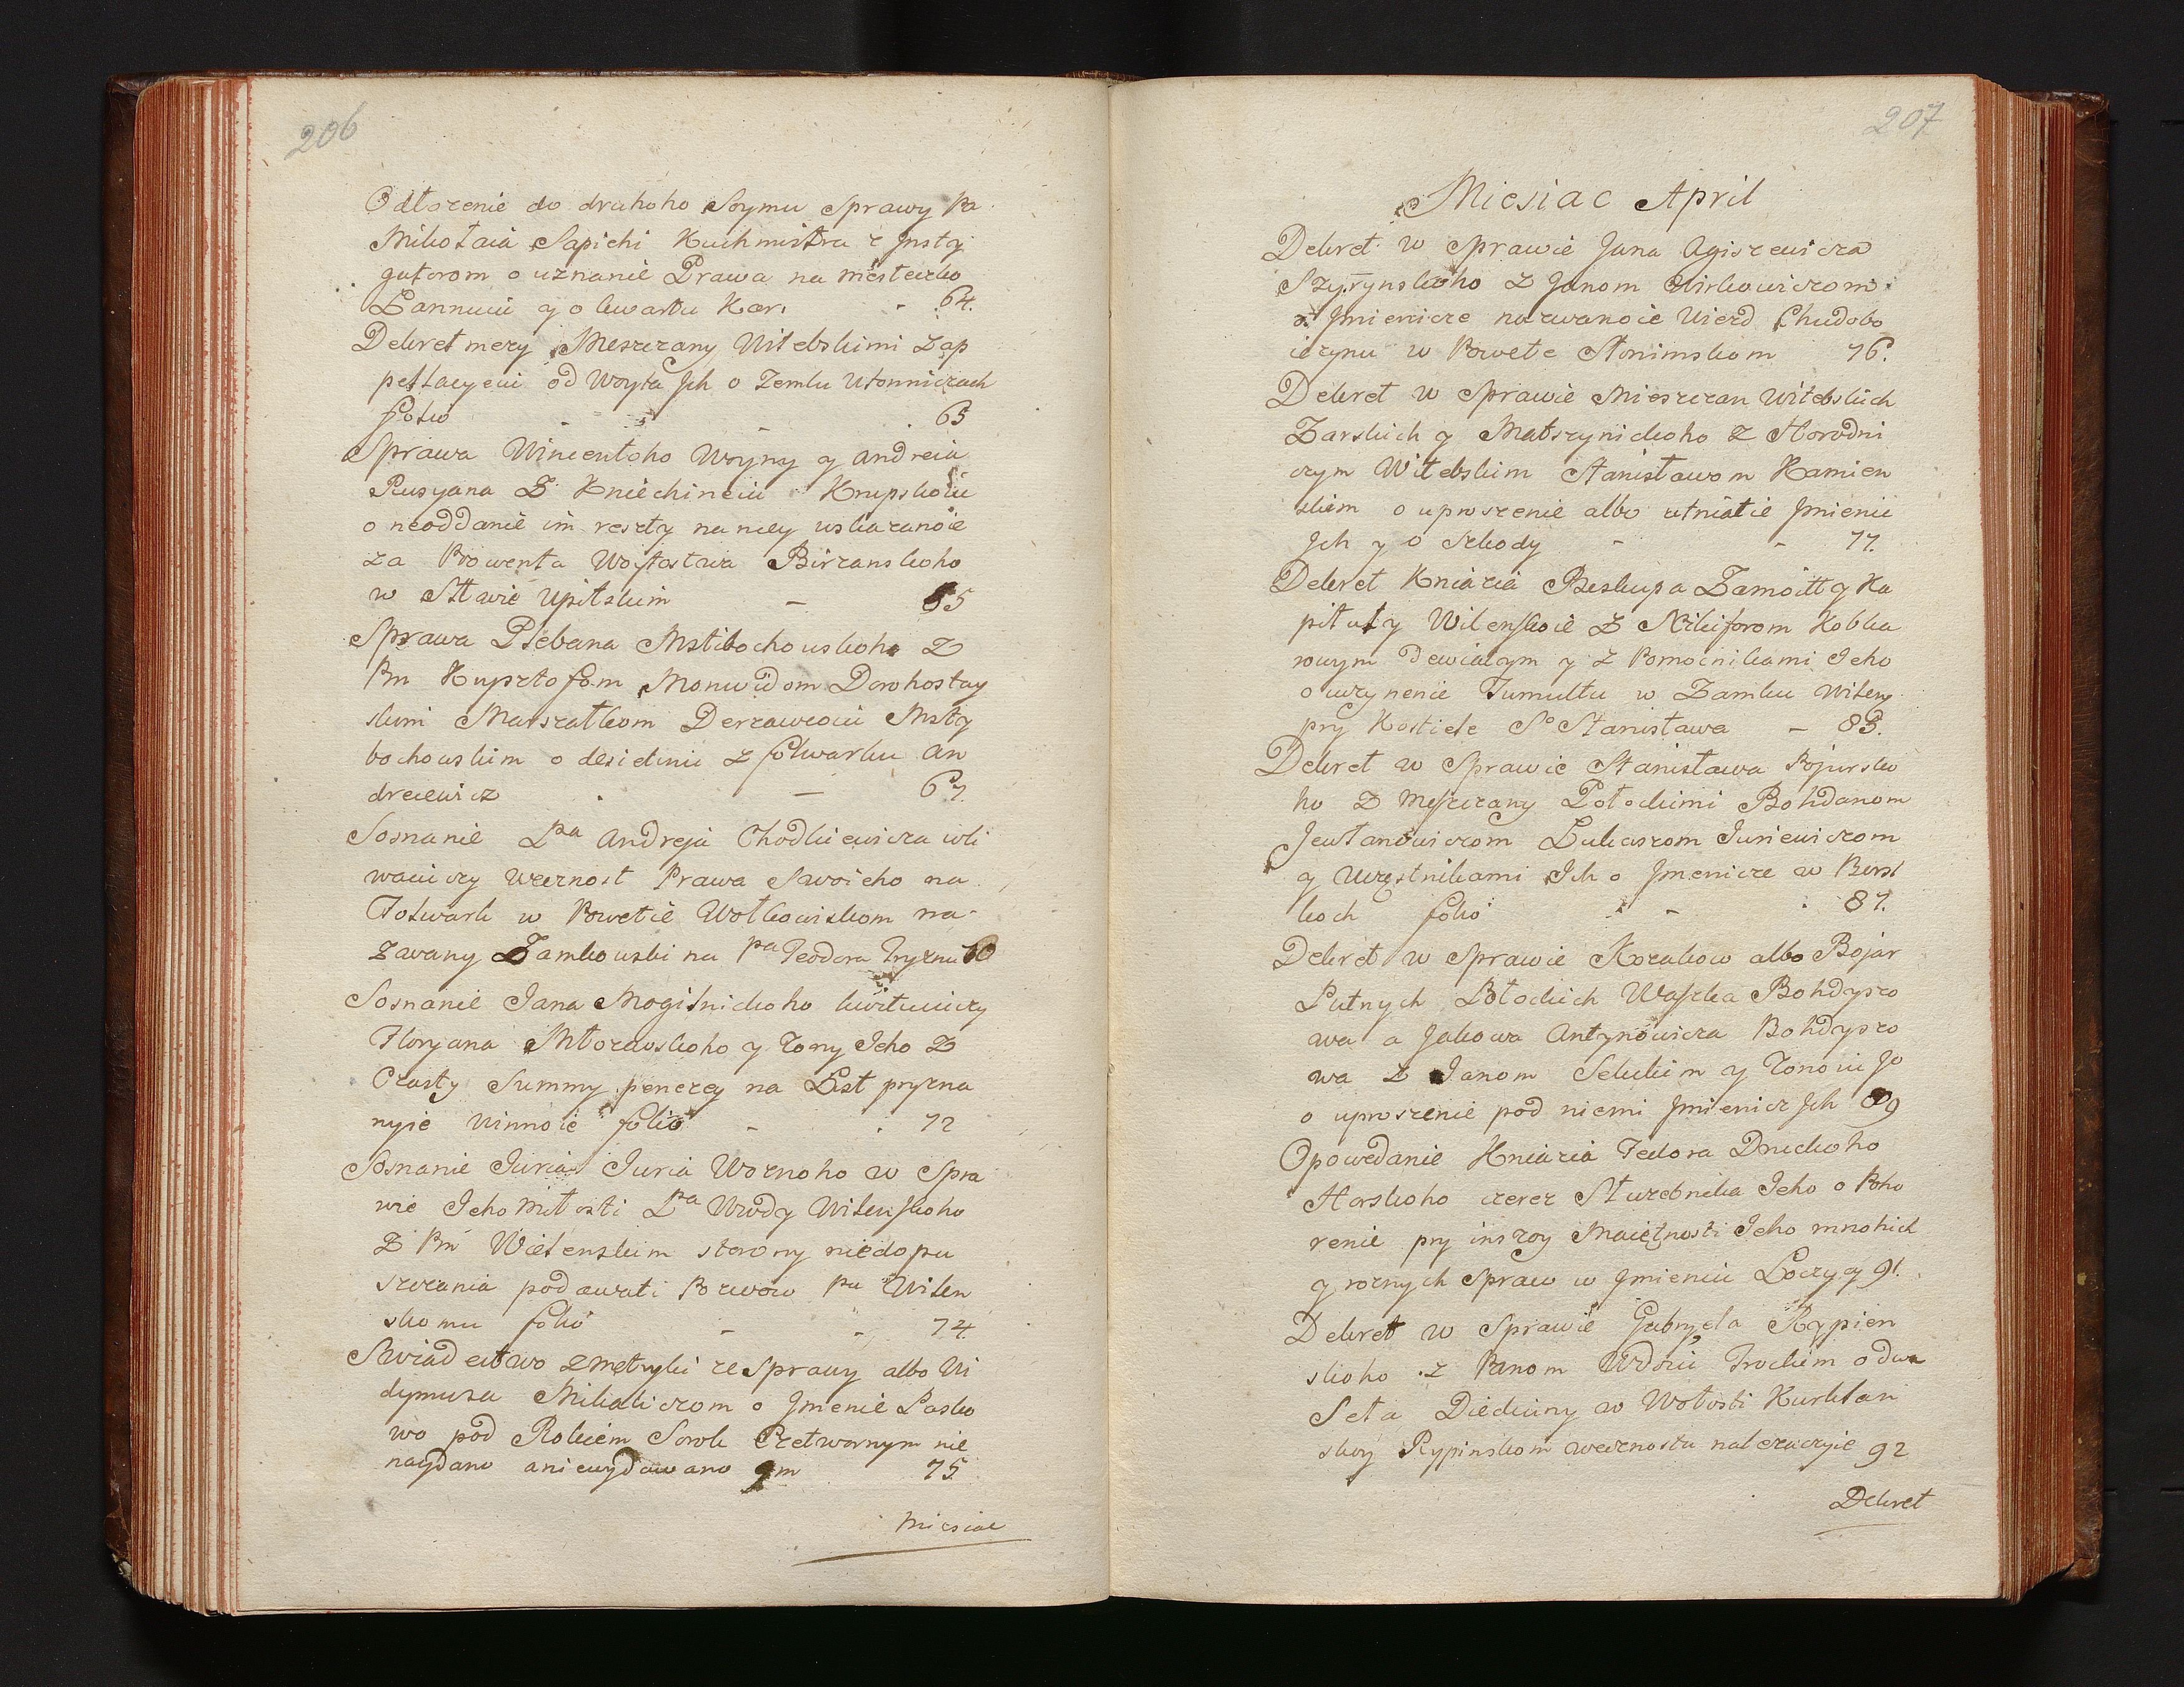 206
Odłozenie do druhoho Soymu Sprawy Pa
Mikołaia Sapiehi Kuchmistra z Insty
gatorom o uznanie Prawa na mestečko
Łannuiu y o kwartu Kor. - 64.
Dekret mezy Meszczany Witebskimi z ap
pellacyeiu od Woyta Ich o Zemlu Utonniczach
folio - - 65
Sprawa Wincentoho Woyny y Andreia
Rusyana Z Kniehineiu Krupskoiu
o neoddanie im reszty na neey uskazanoie
za Prowenta Woytostwa Birzanskoho
w Sttwie Upitskim - 65
Sprawa Plebana Mstibochouskoho Z
Pm Krysztofom Monwidom Dorohostay
skim Marszałkom Derzawcoiu Msty
bochouskim o desietinu z folwarku An
dreiewicz . - 67.
Soznanie Pa Andreja Chodkiewicza wli
waiuczy wecznost Prawa Swoieho na
Folwark w Powetie Wołkowiskom na-
zwany Zamkouski na Pa Teodora Tryznu 70
Soznanie Jana Mogilnickoho kwituiuczy
Floryana Młozdowskoho y Zony Jeho Z
Czasty Summy penezey na List pryzna
nyie Winnoie folio - . 72
Soznanie Juria Juria Woznoho w Spra
wie Jeho Miłosti Pa Wwdy Wilenskoho
Z Pm Wielenskim storony niedopu
szczania podawati Pozwow Pu Wilen
skomu folio - - 74
Swiadectwo z metryki ze Sprawy albo Wi
dymusa Mikaliczom o Imenie Lasko
wo pod Rokiem Sorok Czetwornym nie
naydano aniewydawano im 75
Miesiac
207
Miesiac April
Dekret w Sprawie Jana Agiszewicza
Szyrynskoho z Janom Mirkowiczom
o Imienicze nazwanoie Uiezd Chudobo
iczynu w Powete Słonimskom 76.
Dekret w Sprawie Mieszczan Witebskich
Zarskich y Matszynickoho z Horodni
czym Witebskim Stanisławom Kamien
skim o uproszenie albo utniatie Imienii
Ich y o Szkody - - 77.
Dekret Kniazia Biskupa Zamoitt y Ka
pituły Wilenskoie Z Nikiforom Kobka
rowym Dewiatym y z Pomocnikami Jeho
o uczynenie Tumultu w Zamku Wileny
pry Kostiele So Stanisława - 83.
Dekret w Sprawie Stanisława Pojursko
ho Z Meszczany Połockimi Bohdanom
Jewłanowiczom Łukaszom Juriewiczom
y Uczęstnikami Ich o Imenicze w Borst
koch folio - - 87.
Dekret w Sprawie Kozakow albo Bojar
Putnych Połockich Waszka Bohdyszo
wa a Jakowa Antynowicza Bohdyszo
wa z Janom Selickim y Zonoiu Jo
o uproszenie pod niemi Imienicz Ich 89
Opowedanie Kniazia Fedora Druckoho
Horskoho czerez Służebnika Jeho o Poho
renie pry inszoy Maiętnosti Jeho mnohich
y roznych Spraw w Imieniu Łoczyey 91.
Dekret w Sprawie Gabryela Rypien
skoho z Panom Wwdoiu Trockim o dwa
Seła Diediciny w Wołosti Kurklan
skoy Rypinskom wecznostu nalezaczyie 92
Dekret